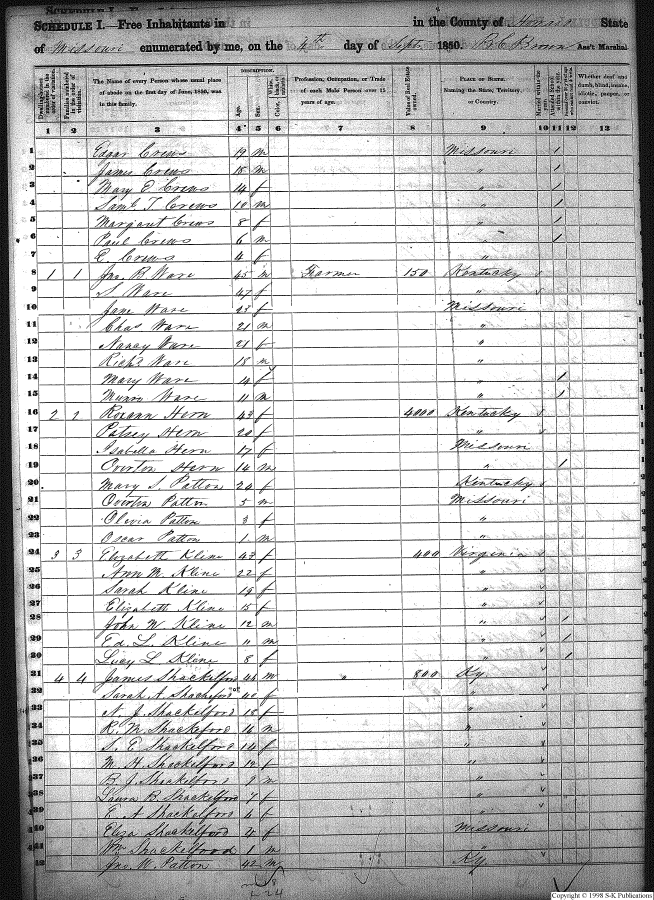 SCHEDULE I.—Free Inhabitants in in the County of Howard State
of Missouri enumerated by me, on the 4th day of Sept. 1850. B. C. Brown Ass't Marshal
DESCRIPTION.
Dwelling-houses numbered in the order of visitation.
Families numbered in the order of visitation.
The Name of every Person whose usual place of abode on the first day of June, 1850, was in this family.
Age.
Sex.
Color, White, black, or mulatto.
Profession, Occupation, or Trade of each Male Person over 15 years of age.
Value of Real Estate owned.
PLACE OF BIRTH. Naming the State, Territory, or Country.
Married within the year.
Attended School within the year.
Whether deaf and dumb, blind, insane, idiotic, pauper, or convict.
1 2 3 4 5 6 7 8 9 10 11 12 13
1 Edgar Crews 19 m Missouri 1
2 James Crews 18 m " 1
3 Mary E Crews 14 f " 1
4 Saml T Crews 10 m " 1
5 Margaret Crews 8 f " 1
6 Paul Crews 6 m " 1
7 E. Crews 4 f "
8 1 1 Jno. B Ware 45 m Farmer 150 Kentucky
9 S Ware 47 f "
10 Jane Ware 23 f Missouri
11 Chas Ware 21 m "
12 Nancy Ware 21 f "
13 Richd Ware 18 m "
14 Mary Ware 14 f " 1
15 Ware 11 m " 1
16 2 2 Roxann Hern 43 f 4000 Kentucky
17 Patsey Hern 20 f "
18 Isabella Hern 17 f Missouri
19 Overton Hern 14 m " 1
20 Mary S Patton 24 f Kentucky
21 Overton Patton 5 m Missouri
22 Olivia Patton 3 f "
23 Oscar Patton 1 m "
24 3 3 Elizabeth Kline 43 f 400 Virginia
25 Ann M. Kline 22 f "
26 Sarah Kline 19 f "
27 Elizabeth Kline 15 f "
28 John W Kline 12 m " 1
29 Ed. L. Kline 11 m " 1
30 Lucy L Kline 8 f " 1
31 4 4 James Shackelford 46 m " 800 Ky
32 Sarah A. Shackelford 40 f "
33 N. J. Shackelford 18 f "
34 R. M. Shackelford 16 m "
35 S. E Shackelford 14 f "
36 M. H. Shackelford 12 f "
37 B J. Shackelford 9 m "
38 Laura B. Shackelford 7 f "
39 E. A Shackelford 4 f "
40 Eliza Shackelford f Missouri
41 Wm Shackelford 1 m "
42 Jno. W. Patton 42 m Ky
24
Copyright © 1998 S-K Publications